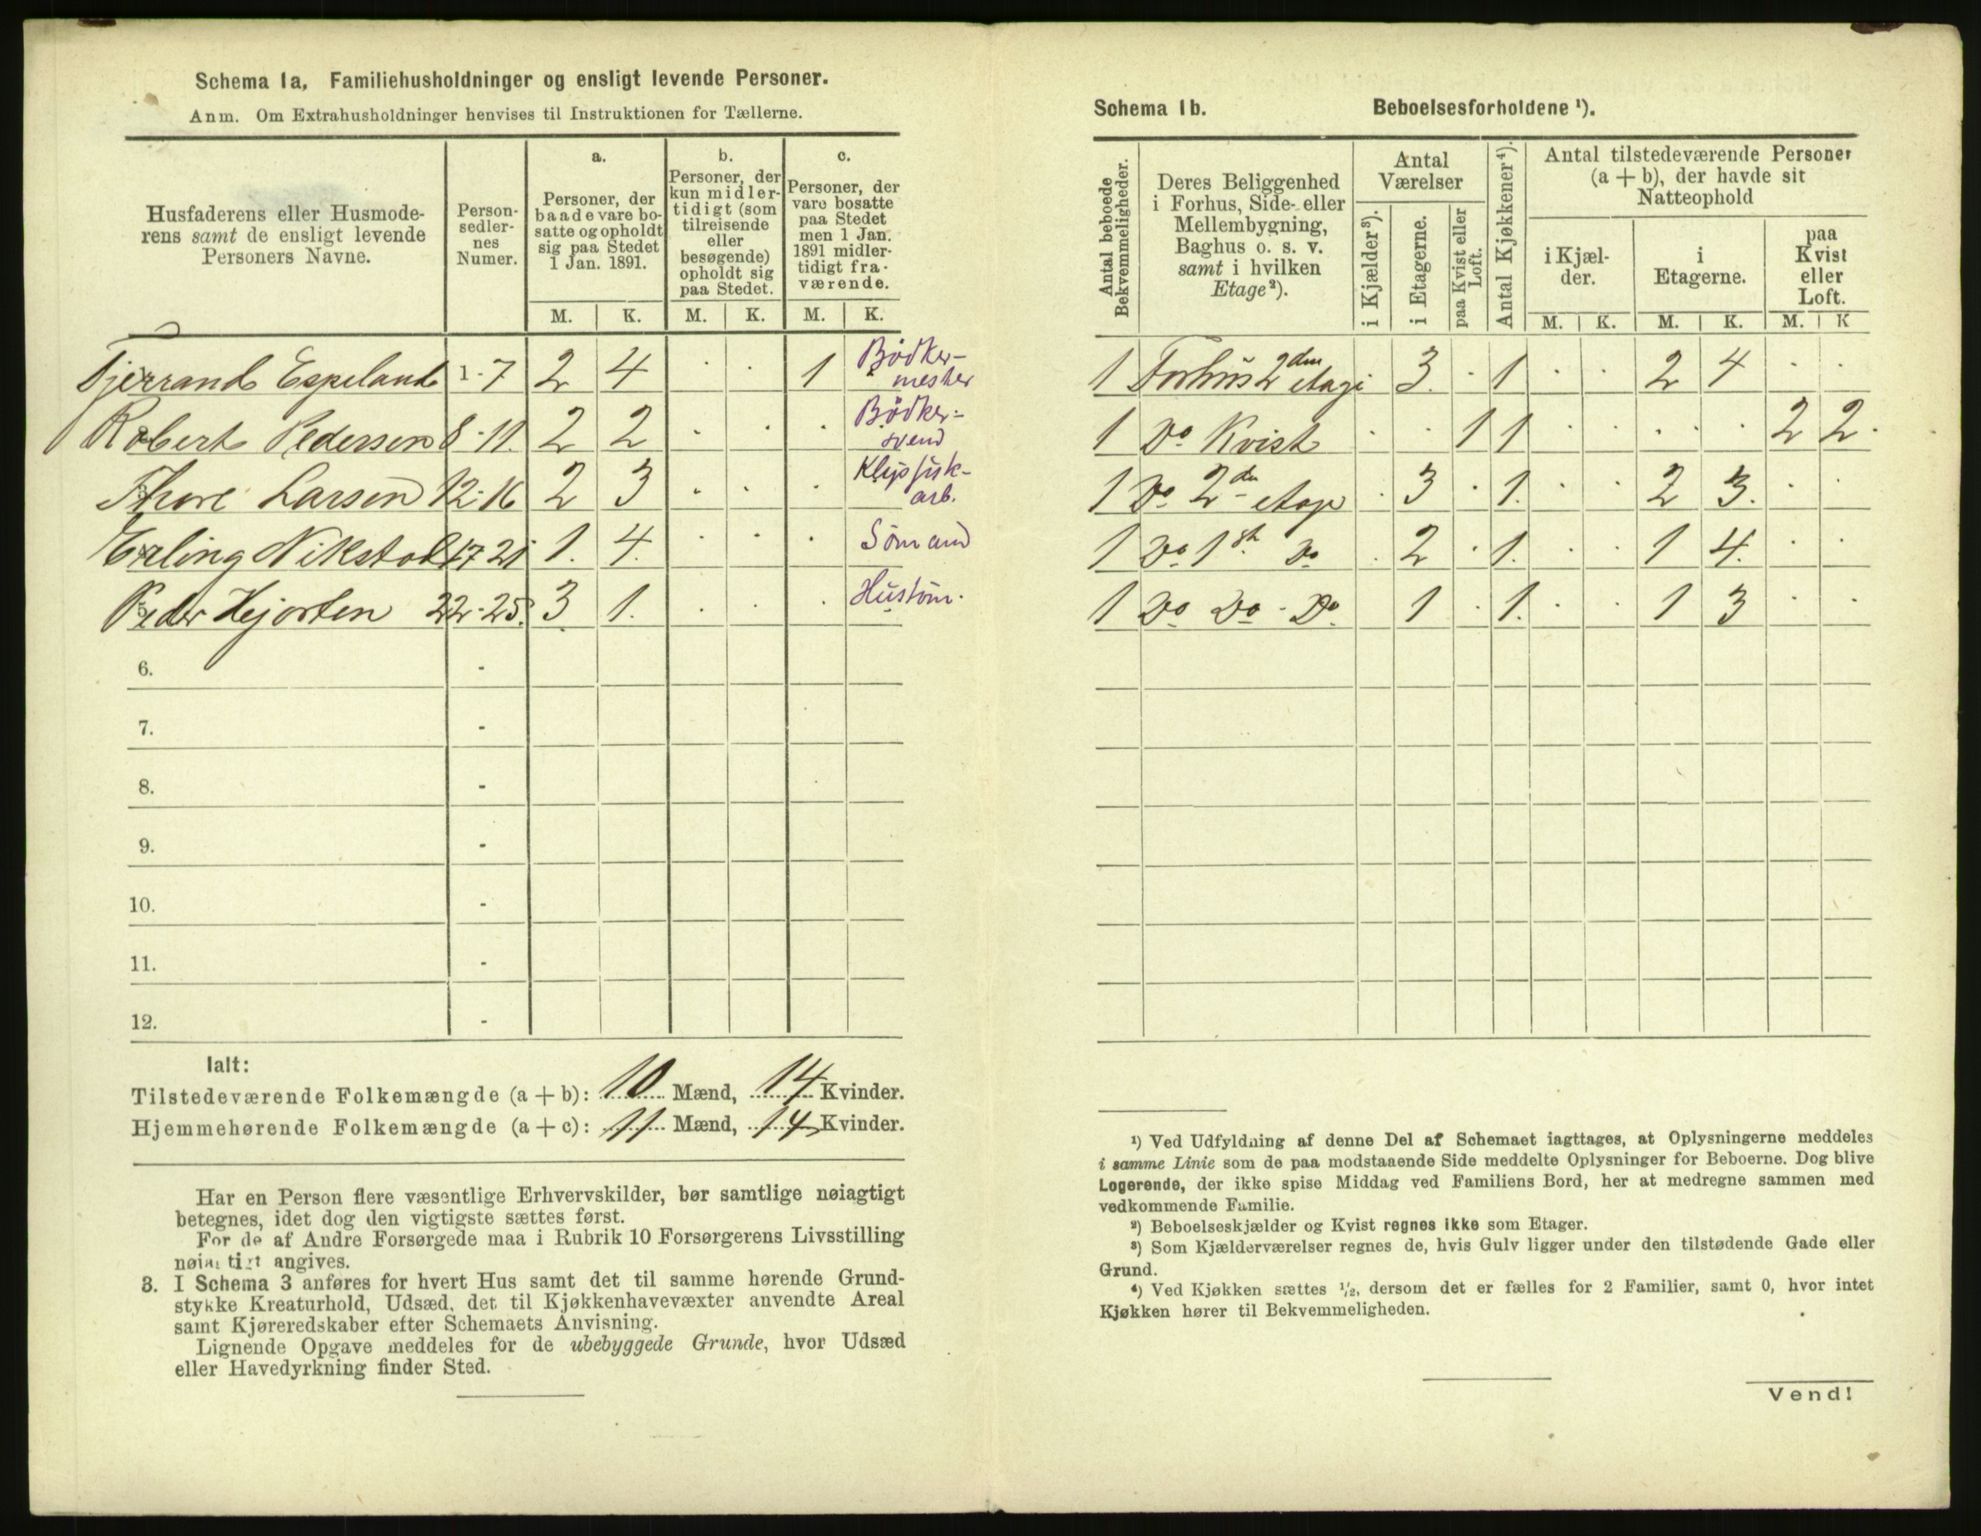 Schema 1a, Familiehusholdninger og ensligt levende Personer.
Anm. Om Extrahusholdninger henvises til Instruktionen for Tællerne.
Husfaderens eller Husmode-
rens samt de ensligt levende
Personers Navne.
Person-
sedler-
nes
Numer.
a.
Personer, der
baade vare bo-
satte og opholdt
sig paa Stedet
1 Jan. 1891.
b.
Personer, der
kun midler-
tidigt (som
tilreisende
eller
besøgende)
opholdt sig
paa Stedet.
c.
Personer, der
vare bosatte
paa Stedet
men 1 Jan.
1891 midler-
tidigt fra-
værende.
M. K. M. K. M. K.
Tjerrand Espeland 1-7 2 4 . . 1 Bødker-
mester
Robert Pedersen 8-11. 2 2 . . . Bødker-
svend
Thore Larsen 12-16 2 3 . . . Klipfisk-
arb.
Erling Nikstol 17-21 1. 4. . . . Sømand
Peder Hejorten 22-25. 3 1. . . . Hustøm.
6. -
7. -
8. -
9. -
10. -
11. -
12. -
Ialt:
Tilstedeværende Folkemængde (a + b): 10 Mænd, 14 Kvinder.
Hjemmehørende Folkemængde (a + c): 11 Mænd, 14 Kvinder.
Har en Person flere væsentlige Erhvervskilder, bør samtlige nøiagtigt
betegnes, idet dog den vigtigste sættes først.
For de af Andre Forsørgede maa i Rubrik 10 Forsørgerens Livsstilling
nøiagtigt angives.
3. I Schema 3 anføres for hvert Hus samt det til samme hørende Grund-
stykke Kreaturhold, Udsæd, det til Kjøkkenhavevæxter anvendte Areal
samt Kjøreredskaber efter Schemaets Anvisning.
Lignende Opgave meddeles for de ubebyggede Grunde, hvor Udsæd
eller Havedyrkning finder Sted.
Schema 1b. Beboelsesforholdene ¹).
Antal beboede
Bekvemmeligheder.
Deres Beliggenhed
i Forhus, Side- eller
Mellembygning,
Baghus o. s. v.
samt i hvilken
Etage²).
Antal
Værelser
i Kjælder³).
i Etagerne.
paa Kvist eller
Loft.
Antal Kjøkkener⁴).
Antal tilstedeværende Personer
(a + b), der havde sit
Natteophold
i Kjæl-
der.
i
Etagerne.
paa
Kvist
eller
Loft.
M. K. M. K. M. K
1 Forhus 2den etage 3. . 1 . . 2 4 . .
1 Do Kvist . . 1 1 . . . . 2 2.
1 Do 2den etage . 3 . 1. . . 2 3. . .
1 Do 1st. Do . 2 . 1. . . 1 4. . .
1 Do Do - Do. 1 . 1. . . 1 3 . .
¹) Ved Udfyldning af denne Del af Schemaet iagttages, at Oplysningerne meddeles
i samme Linie som de paa modstaaende Side meddelte Oplysninger for Beboerne. Dog blive
Logerende, der ikke spise Middag ved Familiens Bord, her at medregne sammen med
vedkommende Familie.
²) Beboelseskjælder og Kvist regnes ikke som Etager.
³) Som Kjælderværelser regnes de, hvis Gulv ligger under den tilstødende Gade eller
Grund.
⁴) Ved Kjøkken sættes ¹/₂, dersom det er fælles for 2 Familier, samt 0, hvor intet
Kjøkken hører til Bekvemmeligheden.
Vend!